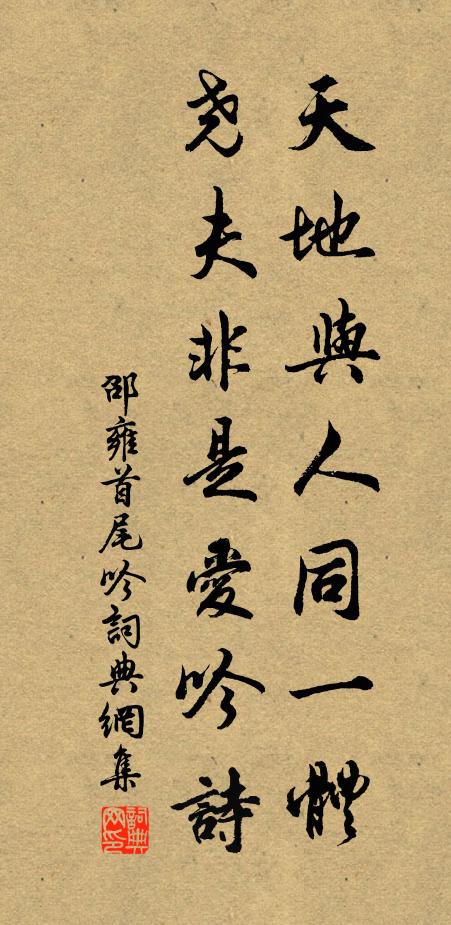 天地與人同一體
堯夫非是愛吟詩
邵雍首尾吟詞典網集
詞典网印